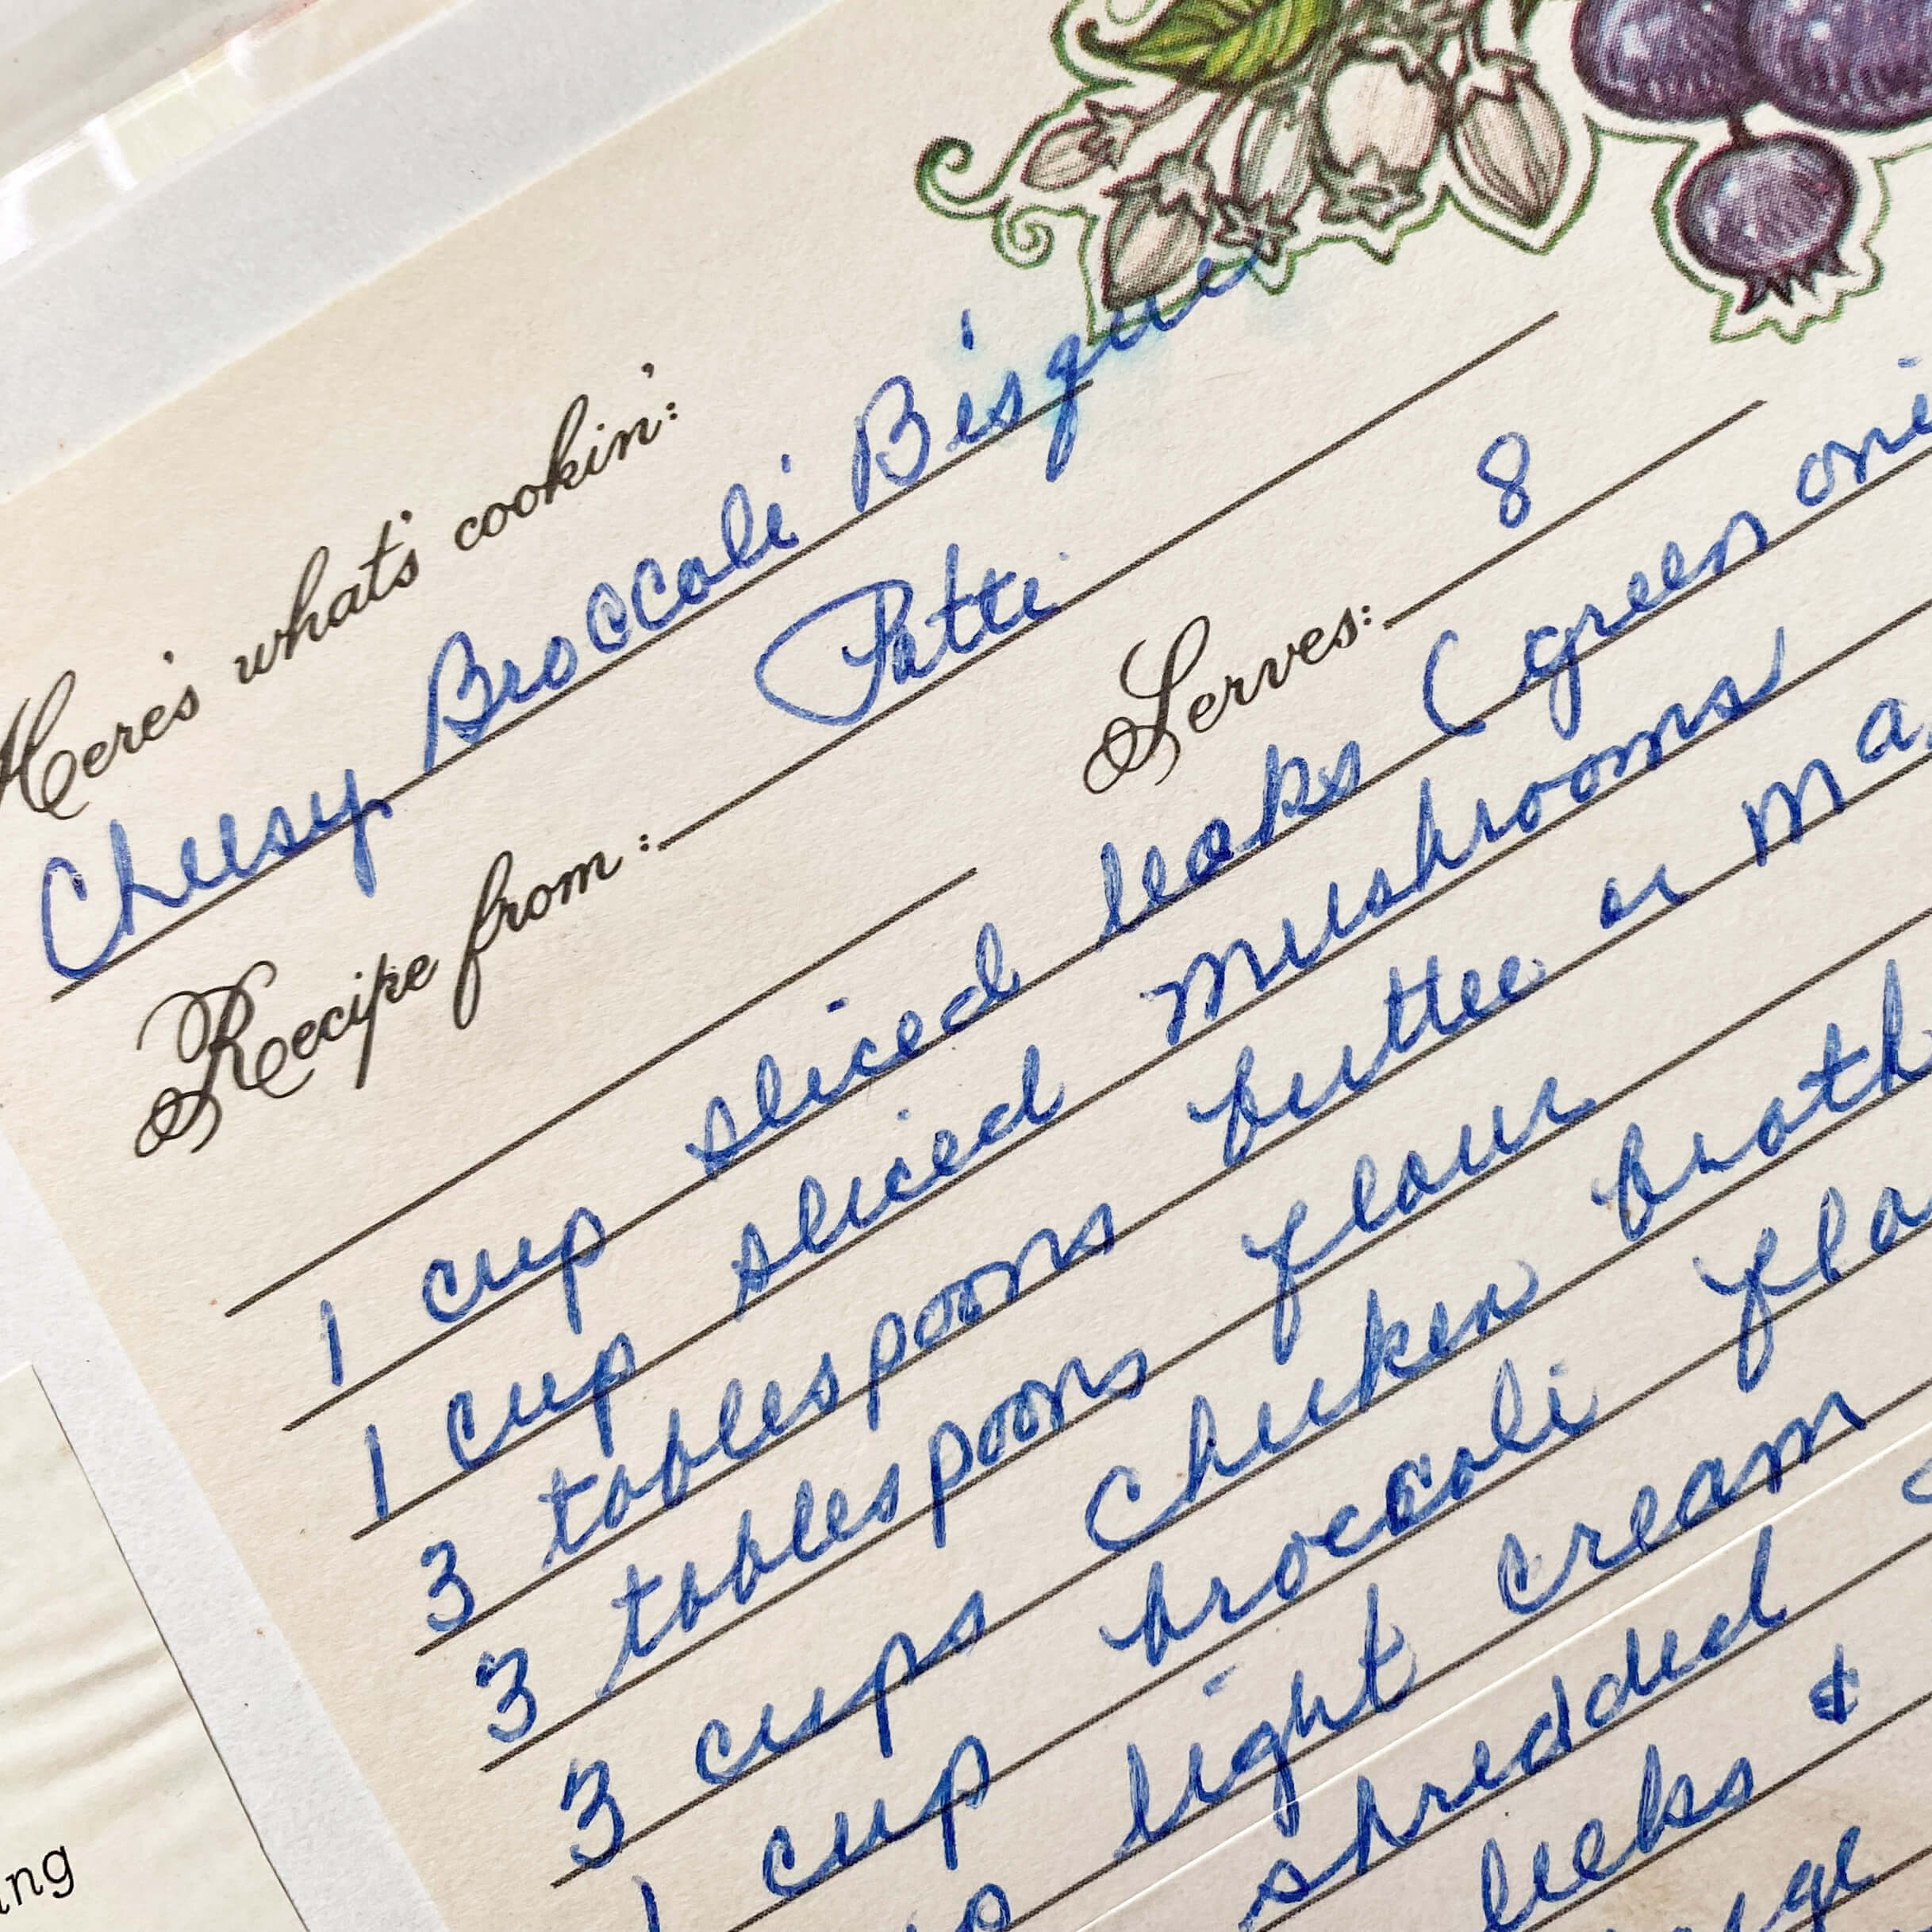 Here's what's cookin':
Cheesy Broccoli Bisque
Recipe from: Patti
Serves: 8
1 cup sliced leaks (green oni
1 cup sliced mushrooms
3 tablespoons butter or ma
3 tablespoons flour
3 cups chicken broth
1 cup broccoli flo
p light cream
shredded
leeks &
ing